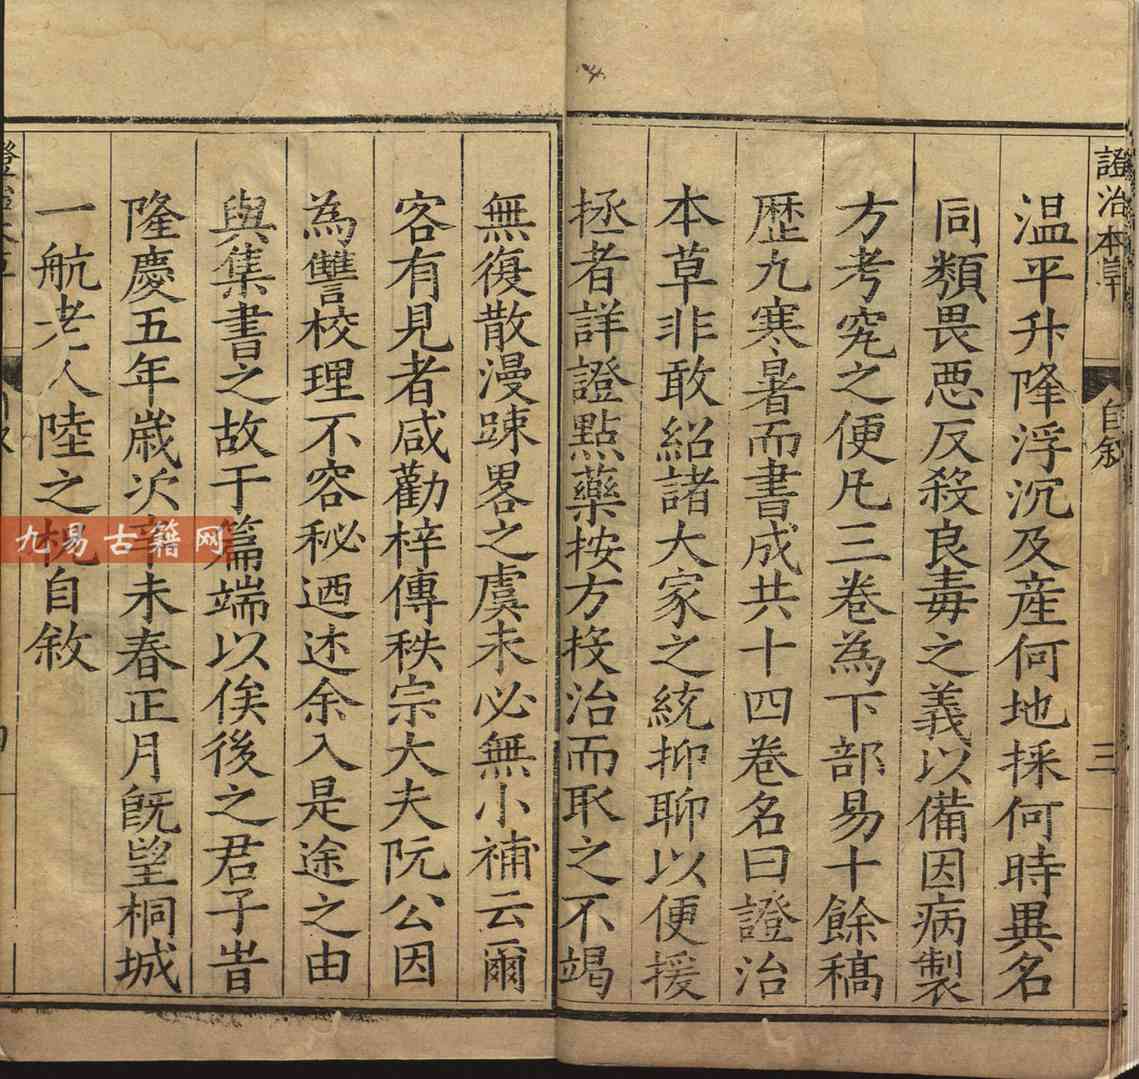 證治本草
自敘
三
温平升降浮沉及産何地採何時異名
同類畏惡反殺良毒之義以備因病製
方考究之便凡三卷為下部易十餘稿
歷九寒暑而書成共十四卷名曰證治
本草非敢紹諸大家之統抑聊以便援
拯者詳證點藥按方投治而取之不竭
無復散漫踈畧之虞未必無小補云爾
客有見者咸勸梓傳秩宗大夫阮公因
為讐校理不容秘迺述余入是途之由
與集書之故于篇端以俟後之君子旹
隆慶五年歲次辛未春正月旣望桐城
一航老人陸之柷自敘
九易古籍网